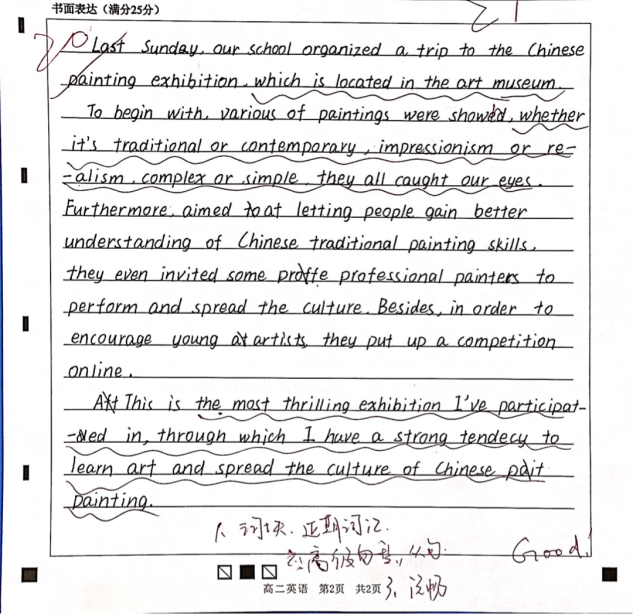 书面表达（满分25分）
21
20
Last Sunday, our school organized a trip to the Chinese
painting exhibition, which is located in the art museum.
To begin with, various of paintings were showed, whether
it's traditional or contemporary, impressionism or re-
-alism, complex or simple, they all caught our eyes.
Furthermore, aimed at letting people gain better
understanding of Chinese traditional painting skills,
they even invited some professional painters to
perform and spread the culture. Besides, in order to
encourage young artists, they put up a competition
online.
This is the most thrilling exhibition I've participat-
-ed in, through which I have a strong tendecy to
learn art and spread the culture of Chinese
painting.
1、词块
2、高级句, 从句.
Good!
高二英语 第2页 共2页
3、